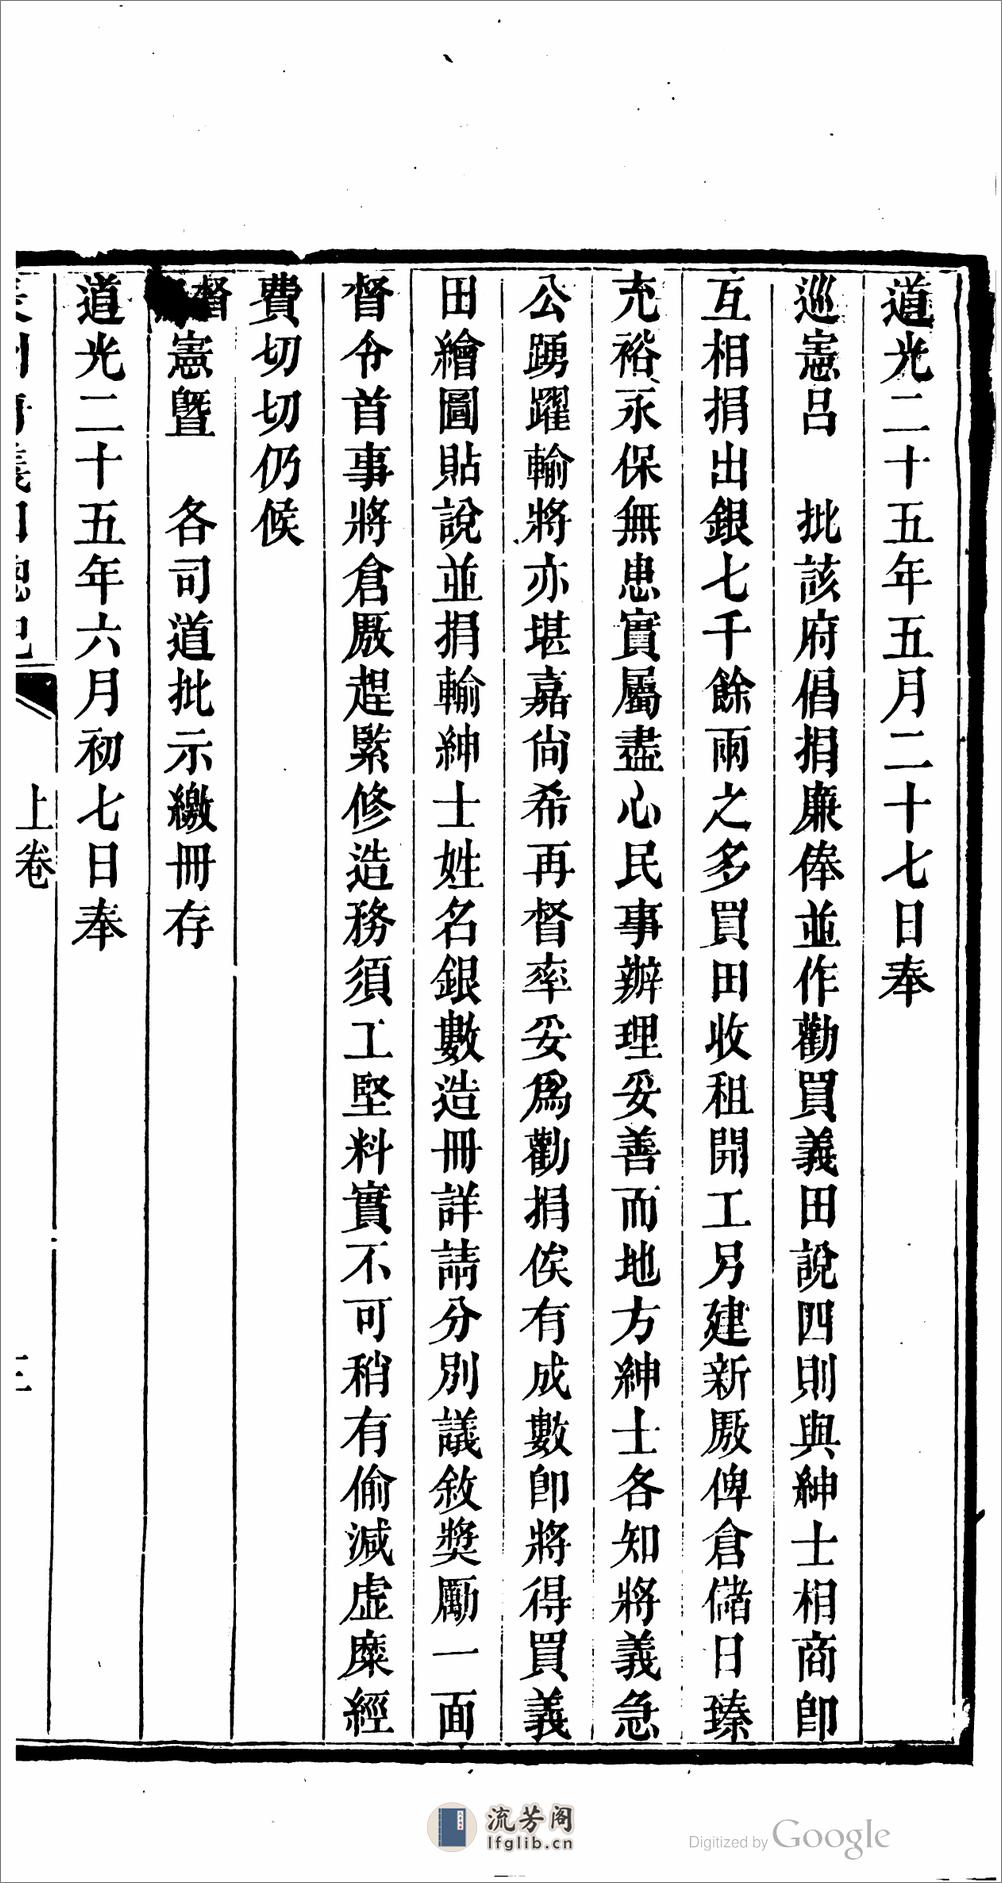 道光二十五年五月二十七日奉
巡憲呂　批該府倡捐廉俸並作勸買義田說四則與紳士相商卽
互相捐出銀七千餘兩之多買田收租開工另建新厫俾倉儲日臻
充裕永保無患實屬盡心民事辦理妥善而地方紳士各知將義急
公踴躍輸將亦堪嘉尙希再督率妥爲勸捐俟有成數卽將得買義
田繪圖貼說並捐輸紳士姓名銀數造冊詳請分別議敘獎勵一面
督令首事將倉厫趕緊修造務須工堅料實不可稍有偷減虛糜經
費切切仍候
督憲暨　各司道批示繳冊存
道光二十五年六月初七日奉
上卷
流芳阁
lfglib.cn
Digitized by Google